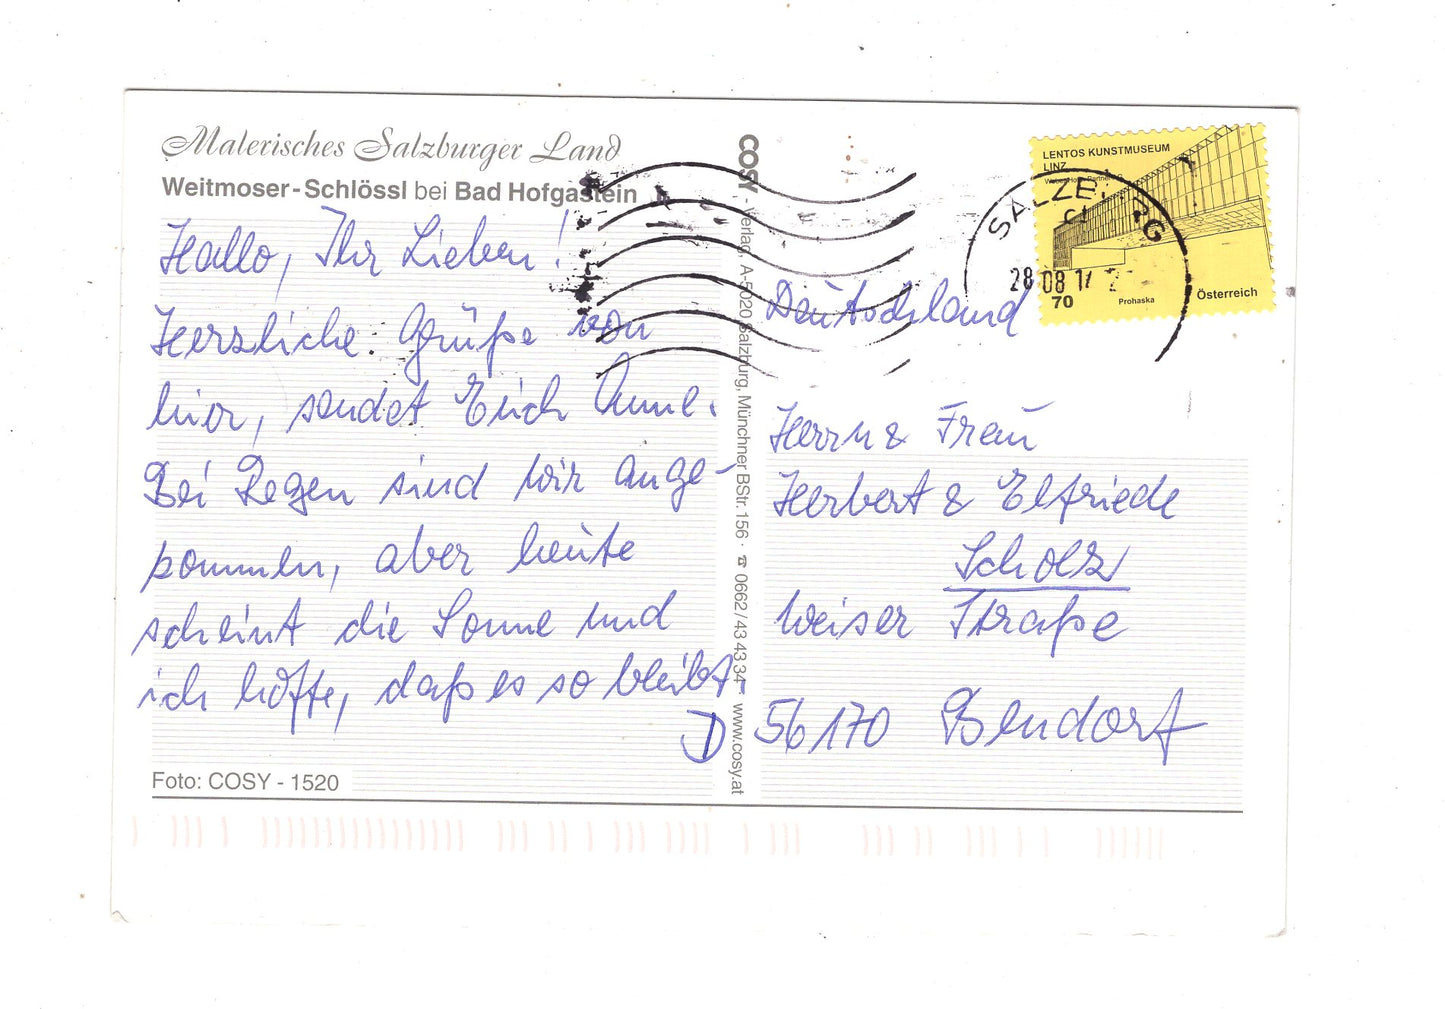 Malerisches Salzburger Land
Weitmoser-Schlössl bei Bad Hofgastein
Hallo, Ihr Lieben!
Herzliche Grüße von
hier, sendet Euch Anne.
Bei Regen sind wir ange-
kommen, aber heute
scheint die Sonne und
ich hoffe, daß es so bleibt.
Foto: COSY - 1520
COSY - Verlag, A-5020 Salzburg, Münchner BStr. 156 · ☎ 0662/43 43 34 www.cosy.at
LENTOS KUNSTMUSEUM
LINZ
70
Prohaska
Österreich
SALZBURG
28 08 1
Deutschland
Herrn & Frau
Herbert & Elfriede
Scholz
Weiser Straße
56170 Bendorf
D